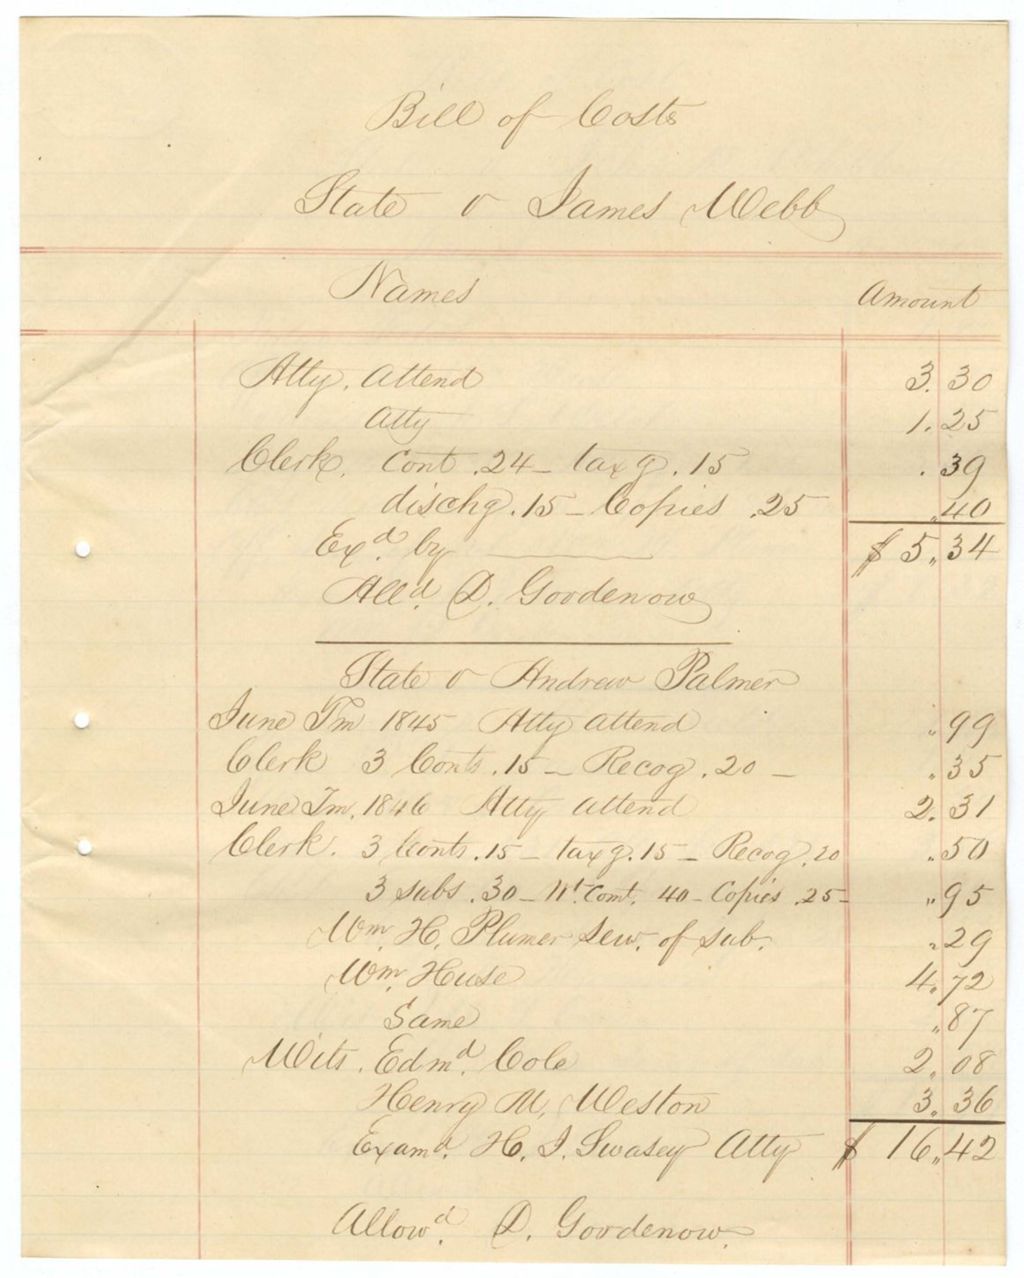 Bill of Costs
State v James Webb
Names Amount
Atty. Attend 3.30
Atty 1.25
Clerk. Cont .24 - taxg .15 .39
dischg .15 - Copies .25 .40
Exd. by ———— $5.34
Alld. D. Goodenow
State v Andrew Palmer
June Tm 1845 Atty attend .99
Clerk 3 Conts .15 - Recog .20 - .35
June Tm. 1846 Atty attend 2.31
Clerk. 3 Conts .15 - taxg .15 - Recog .20 .50
3 subs .30 - Comt. 40 - Copies .25 - .95
Wm. H. Plumer Serv. of sub. .29
Wm. Huse 4.72
Same .87
Wits. Edmd. Cole 2.08
Henry M. Weston 3.36
Examd. H. J. Swasey Atty $16.42
Allowd. D. Goodenow.